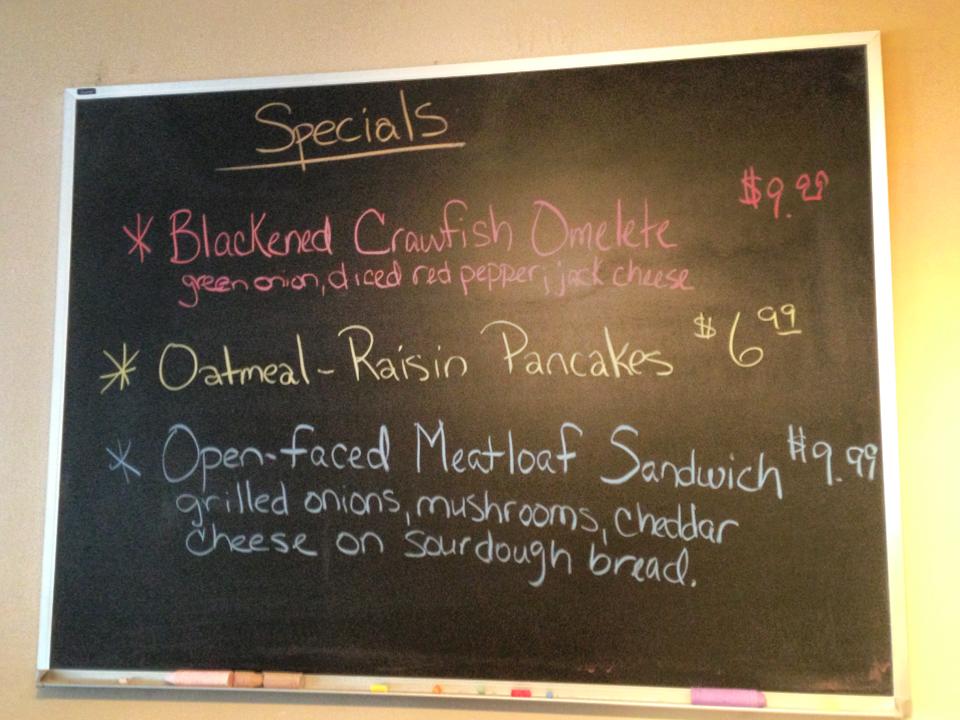 Specials
$9.99
* Blackened Crawfish Omelete
green onion, diced red pepper, jack cheese
* Oatmeal-Raisin Pancakes $6.99
* Open-faced Meatloaf Sandwich $9.99
grilled onions, mushrooms, cheddar
cheese on sourdough bread.